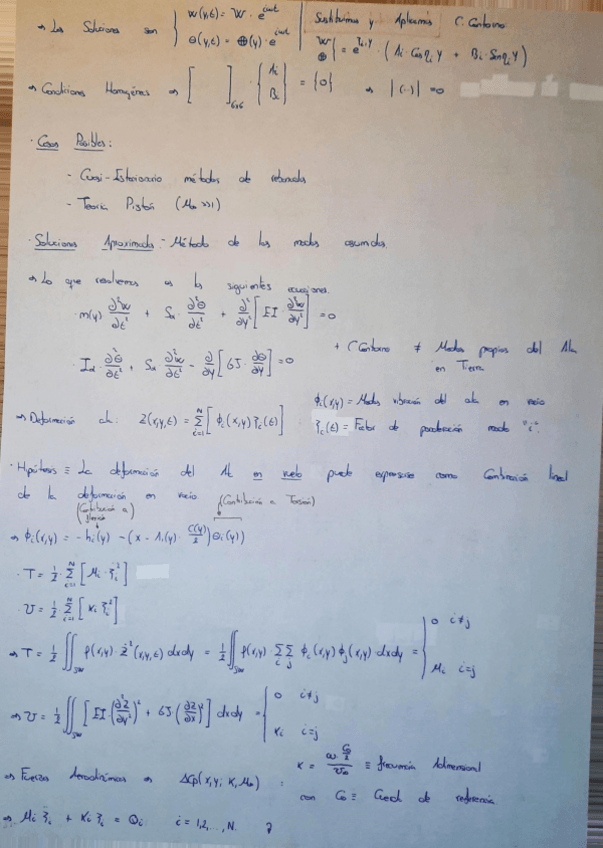 ⇒ Las Soluciones son { w(y,t) = W · e^{iωt} | Sustituimos y Aplicamos C. Contorno
θ(y,t) = Θ(y) · e^{iωt} | W Θ } = e^{η_i y} · (A_i · Cos η_i y + B_i · Sen η_i y)
⇒ Condiciones Homogéneas ⇒ [ ]_{6x6} · { A_i B_i } = {0} ⇒ |(·)| = 0
· Casos Posibles:
- Cuasi-Estacionario métodos de rebanadas
- Teoría Pistón (M∞ >>1)
· Soluciones Aproximadas: - Método de los modos asumidos.
⇒ Lo que resolvemos es las siguientes ecuaciones.
· m(y) ∂²w/∂t² + Sα · ∂²θ/∂t² + ∂²/∂y² [EI · ∂²w/∂y²] = 0
· Iα · ∂²θ/∂t² + Sα ∂²w/∂t² - ∂/∂y [GJ · ∂θ/∂y] = 0
+ C Contorno ≠ Modos propios del Ala en Tierra
⇒ Deformación ala: Z(x,y,t) = Σ_{i=1}^{N} [φ_i(x,y) ξ_i(t)]
φ_i(x,y) = Modos vibración del ala en vacío
ξ_i(t) = Factor de ponderación modo "i".
· Hipótesis ≡ La deformación del Ala en vuelo puede expresarse como Combinación lineal
de la deformación en vacío
(Contribución a flexión) (Contribución a Torsión)
⇒ φ_i(x,y) = -h_i(y) - (x - Λ_i(y) · C(y)/2) θ_i(y))
· T = 1/2 · Σ_{i=1}^{N} [M_i · ξ̇_i²]
· U = 1/2 · Σ_{i=1}^{N} [K_i ξ_i²]
⇒ T = 1/2 ∬_{SW} ρ(x,y) · ż²(x,y,t) dxdy = 1/2 ∬_{SW} ρ(x,y) · Σ_i Σ_j φ_i(x,y) φ_j(x,y) · dxdy = { 0 i≠j
M_i i=j
⇒ U = 1/2 ∬_{SW} [EI (∂²z/∂y²)² + GJ (∂z/∂x)²] dxdy = { 0 i≠j
K_i i=j
⇒ Fuerzas Aerodinámicas ⇒ ΔCp(x,y; K, M∞) :
K = ω C₀/2 / U∞ ≡ frecuencia Adimensional
con C₀ ≡ Cuerda de referencia
⇒ M_i ξ̈_i + K_i ξ_i = Q_i i=1,2,...,N.